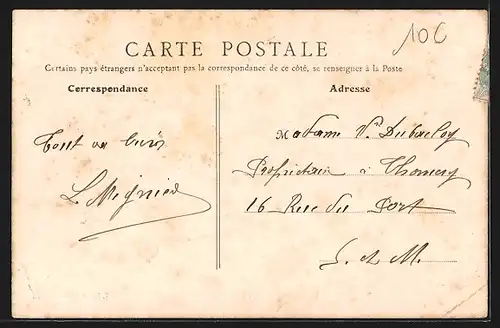 10C
CARTE POSTALE
Certains pays étrangers n'acceptant pas la correspondance de ce côté, se renseigner à la Poste
Correspondance
Adresse
Tout va bien
L. Mignier
Madame Ve Dubuloy
Propriétaire à Thomery
16 Rue du Port
S. et M.